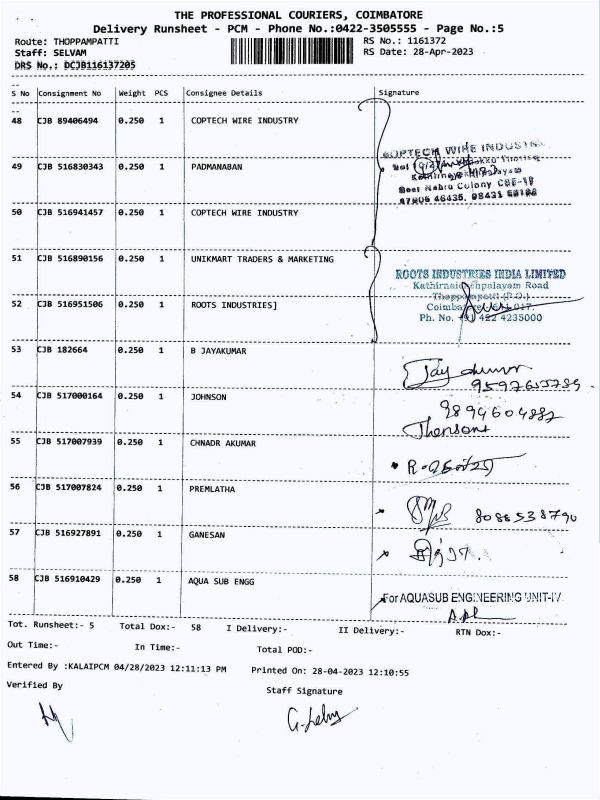 THE PROFESSIONAL COURIERS, COIMBATORE
Delivery Runsheet - PCM - Phone No.:0422-3505555 - Page No.:5
Route: THOPPAMPATTI RS No.: 1161372
Staff: SELVAM RS Date: 28-Apr-2023
DRS No.: DCJB116137205
S No Consignment No Weight PCS Consignee Details Signature
48 CJB 89406494 0.250 1 COPTECH WIRE INDUSTRY
COPTECH WIRE INDUSTRY
49 CJB 516830343 0.250 1 PADMANABAN
Near Nehru Colony CBE-18
50 CJB 516941457 0.250 1 COPTECH WIRE INDUSTRY
51 CJB 516890156 0.250 1 UNIKMART TRADERS & MARKETING
ROOTS INDUSTRIES INDIA LIMITED
Kathirnaickenpalayam Road
Thoppampatti (P.O.)
52 CJB 516951506 0.250 1 ROOTS INDUSTRIES]
Coimbatore 641 017.
Ph. No. +91 422 4235000
53 CJB 182664 0.250 1 B JAYAKUMAR
54 CJB 517000164 0.250 1 JOHNSON
9894604882
55 CJB 517007939 0.250 1 CHNADR AKUMAR
56 CJB 517007824 0.250 1 PREMLATHA
8088538790
57 CJB 516927891 0.250 1 GANESAN
58 CJB 516910429 0.250 1 AQUA SUB ENGG
For AQUASUB ENGINEERING UNIT-IV
Tot. Runsheet:- 5 Total Dox:- 58 I Delivery:- II Delivery:- RTN Dox:-
Out Time:- In Time:- Total POD:-
Entered By :KALAIPCM 04/28/2023 12:11:13 PM Printed On: 28-04-2023 12:10:55
Verified By Staff Signature